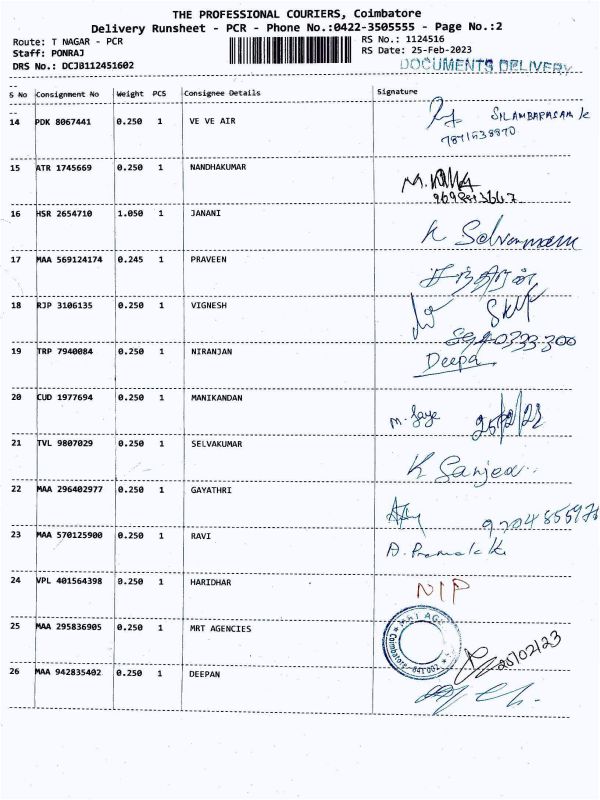 THE PROFESSIONAL COURIERS, Coimbatore
Delivery Runsheet - PCR - Phone No.:0422-3505555 - Page No.:2
Route: T NAGAR - PCR
RS No.: 1124516
Staff: PONRAJ
RS Date: 25-Feb-2023
DRS No.: DCJB112451602
DOCUMENTS DELIVERY
S No Consignment No Weight PCS Consignee Details Signature
14 PDK 8067441 0.250 1 VE VE AIR SILAMBARASAM K
7871538870
15 ATR 1745669 0.250 1 NANDHAKUMAR
16 HSR 2654710 1.050 1 JANANI
17 MAA 569124174 0.245 1 PRAVEEN
18 RJP 3106135 0.250 1 VIGNESH
8940333300
19 TRP 7940084 0.250 1 NIRANJAN Deepa
20 CUD 1977694 0.250 1 MANIKANDAN 25/2/23
21 TVL 9807029 0.250 1 SELVAKUMAR
22 MAA 296402977 0.250 1 GAYATHRI
23 MAA 570125900 0.250 1 RAVI
24 VPL 401564398 0.250 1 HARIDHAR NIP
25 MAA 295836905 0.250 1 MRT AGENCIES 25/02/23
26 MAA 942835402 0.250 1 DEEPAN